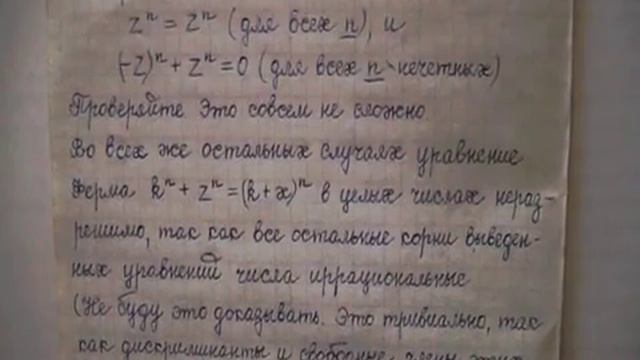 zⁿ = zⁿ (для всех n), и
(-z)ⁿ + zⁿ = 0 (для всех n - нечетных)
Проверяйте. Это совсем не сложно.
Во всех же остальных случаях уравнение
Ферма kⁿ + zⁿ = (k + x)ⁿ в целых числах нераз-
решимо, так как все остальные корни выведен-
ных уравнений числа иррациональные
(Не буду это доказывать. Это тривиально, так
как дискриминанты и свободные члены этих